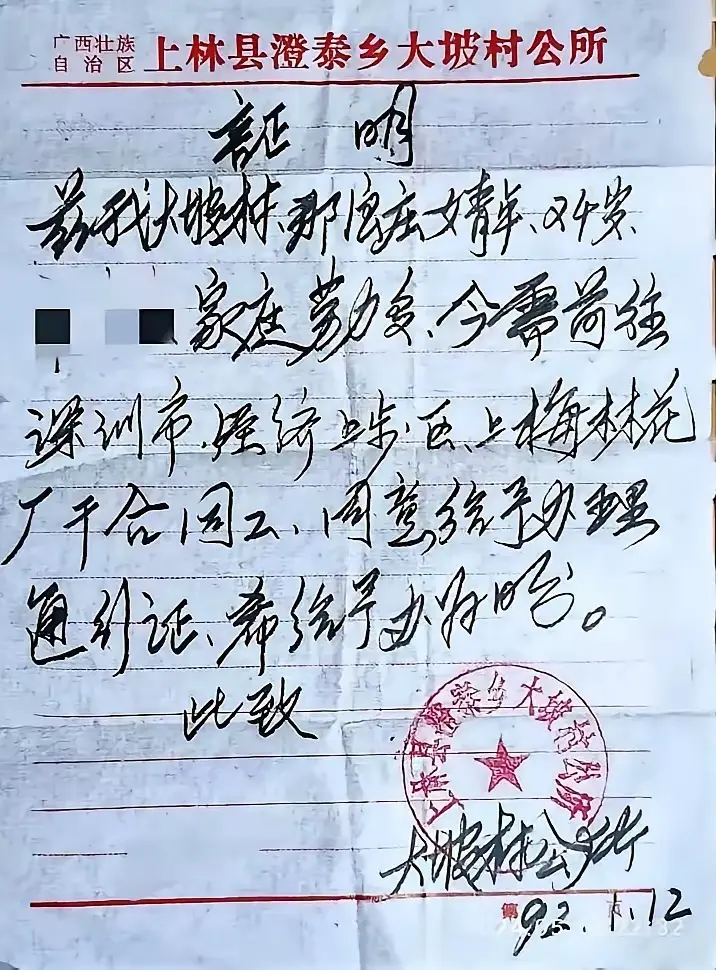 广西壮族
自治区
上林县澄泰乡大坡村公所
証明
兹我大坡村那宿庄女青年、24岁、
家庭劳力多、今需前往
深圳市经济上步区上梅林花
厂干合同工、同意给予办理
通行证、希给予办好
此致
上林县澄泰乡大坡村公所
大坡村公所
第 页
93.1.12